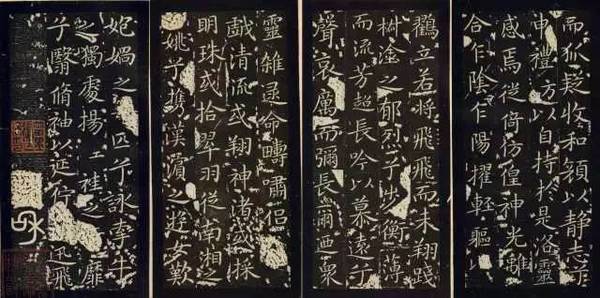 而狐疑收和顏以静志兮
申禮防以自持於是洛靈
感焉徙倚彷徨神光離
合乍陰乍陽擢輕軀以
立若將飛飛而未翔踐
椒塗之郁烈兮步衡薄
而流芳超長吟以慕遠兮
聲哀厲而彌長爾迺衆
靈雜遝命疇嘯侶
戲清流或翔神渚或採
明珠或拾翠羽從南湘之
姚兮携漢濱之遊女歎
媧之匹兮詠牽牛
之獨處揚袿之靡
兮翳脩袖以延佇迅飛